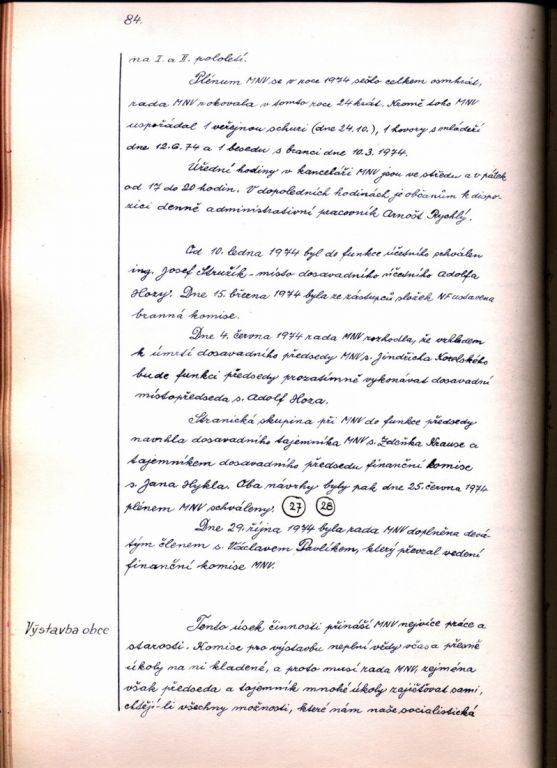 84.
na I. a II. pololetí.
Plénum MNV se v roce 1974 sešlo celkem osmkrát,
rada MNV rokovala v tomto roce 24krát. Kromě toho MNV
uspořádal 1 veřejnou schuzi (dne 24.10.), 1 hovory s mládeží
dne 12.6.74 a 1 besedu s branci dne 10.3.1974.
Úřední hodiny v kanceláři MNV jsou ve středu a v pátek
od 17 do 20 hodin. V dopoledních hodinách, je občanům k dispo-
zici denně administrativní pracovník Arnošt Rychlý.
Od 10. ledna 1974 byl do funkce účetního schválen
ing. Josef Stružík - místo dosavadního účetního Adolfa
Hozy. Dne 15. března 1974 byla ze zástupců složek NF ustavena
branná komise.
Dne 4. června 1974 rada MNV rozhodla, že vzhledem
k úmrtí dosavadního předsedy MNV s. Jindřicha
bude funkci předsedy prozatímně vykonávat dosavadní
místopředseda s. Adolf Hoza.
Stranická skupina při MNV do funkce předsedy
navrhla dosavadního tajemníka MNV s. Zdeňka Krause a
tajemníkem dosavadního předsedu finanční komise
s. Jana Hykla. Oba návrhy byly pak dne 25. června 1974
plénem MNV schváleny. 27 28
Dne 29. října 1974 byla rada MNV doplněna devá-
tým členem s. Václavem Pavlíkem, který převzal vedení
finanční komise MNV.
Výstavba obce
Tento úsek činnosti přináší MNV nejvíce práce a
starostí. Komise pro výstavbu neplní vždy včas a přesně
úkoly na ni kladené, a proto musí rada MNV, zejména
však předseda a tajemník mnohé úkoly zajišťovat sami,
chtějí-li všechny možnosti, které nám naše socialistická